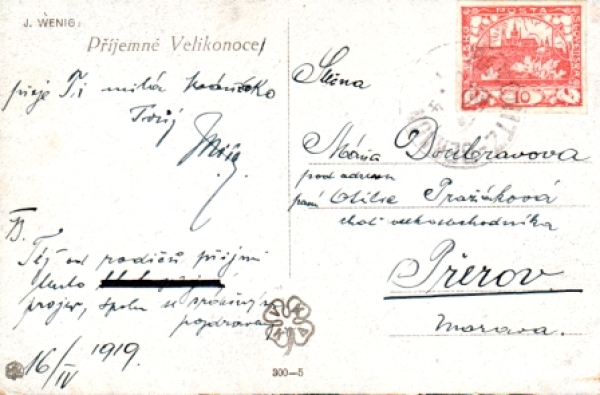 J. WENIG:
Příjemné Velikonoce
přeje Ti milá
Tvůj
Též od rodičů přijmi
tento
projev, spolu se srdečným
pozdravem
16/IV 1919.
POŠTA
ČESKO
SLOVENSKÁ
10
Slečna
Mária Doubravova
pod adresou
paní Otilie Pražáková
choť velkoobchodníka
Přerov.
Morava.
300-5